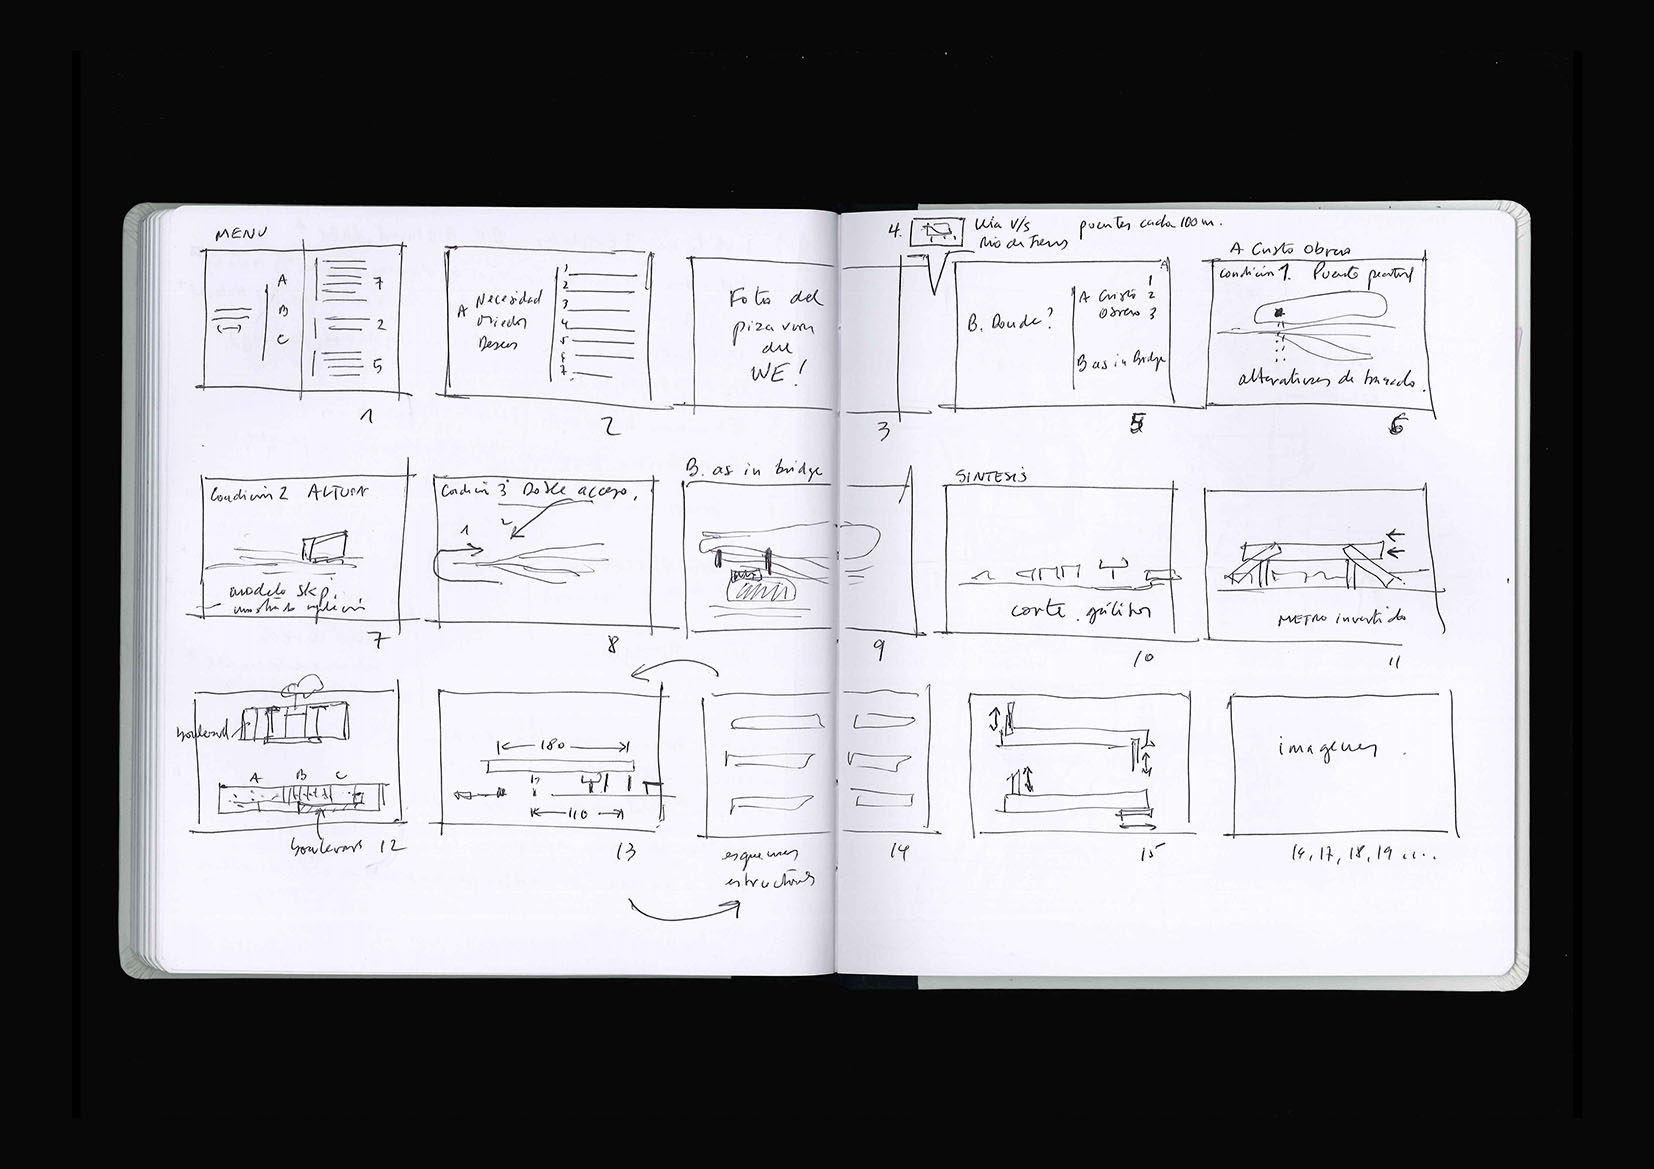 MENU
A
B
C
7
2
5
1
A
Necesidad
Miedos
Deseos
1
2
3
4
5
6
7
2
Foto del
pizarron
del
WE!
3
4.
Ria v/s
puentes cada 100m.
B. Donde?
A
1
A Cristo 2
Obrero 3
B as in Bridge
5
A Cristo Obrero
Condición 1. Puente peatonal
alternativas de trazado.
6
Condición 2 ALTURA
modelo skp.
7
Condición 3 Doble acceso.
1
2
8
B. as in bridge
9
SINTESIS
corte gálibos
10
METRO invertido
11
boulevard
A B C
boulevard
12
180
110
13
esquemas
estructurales
14
15
imagenes.
16, 17, 18, 19 ....